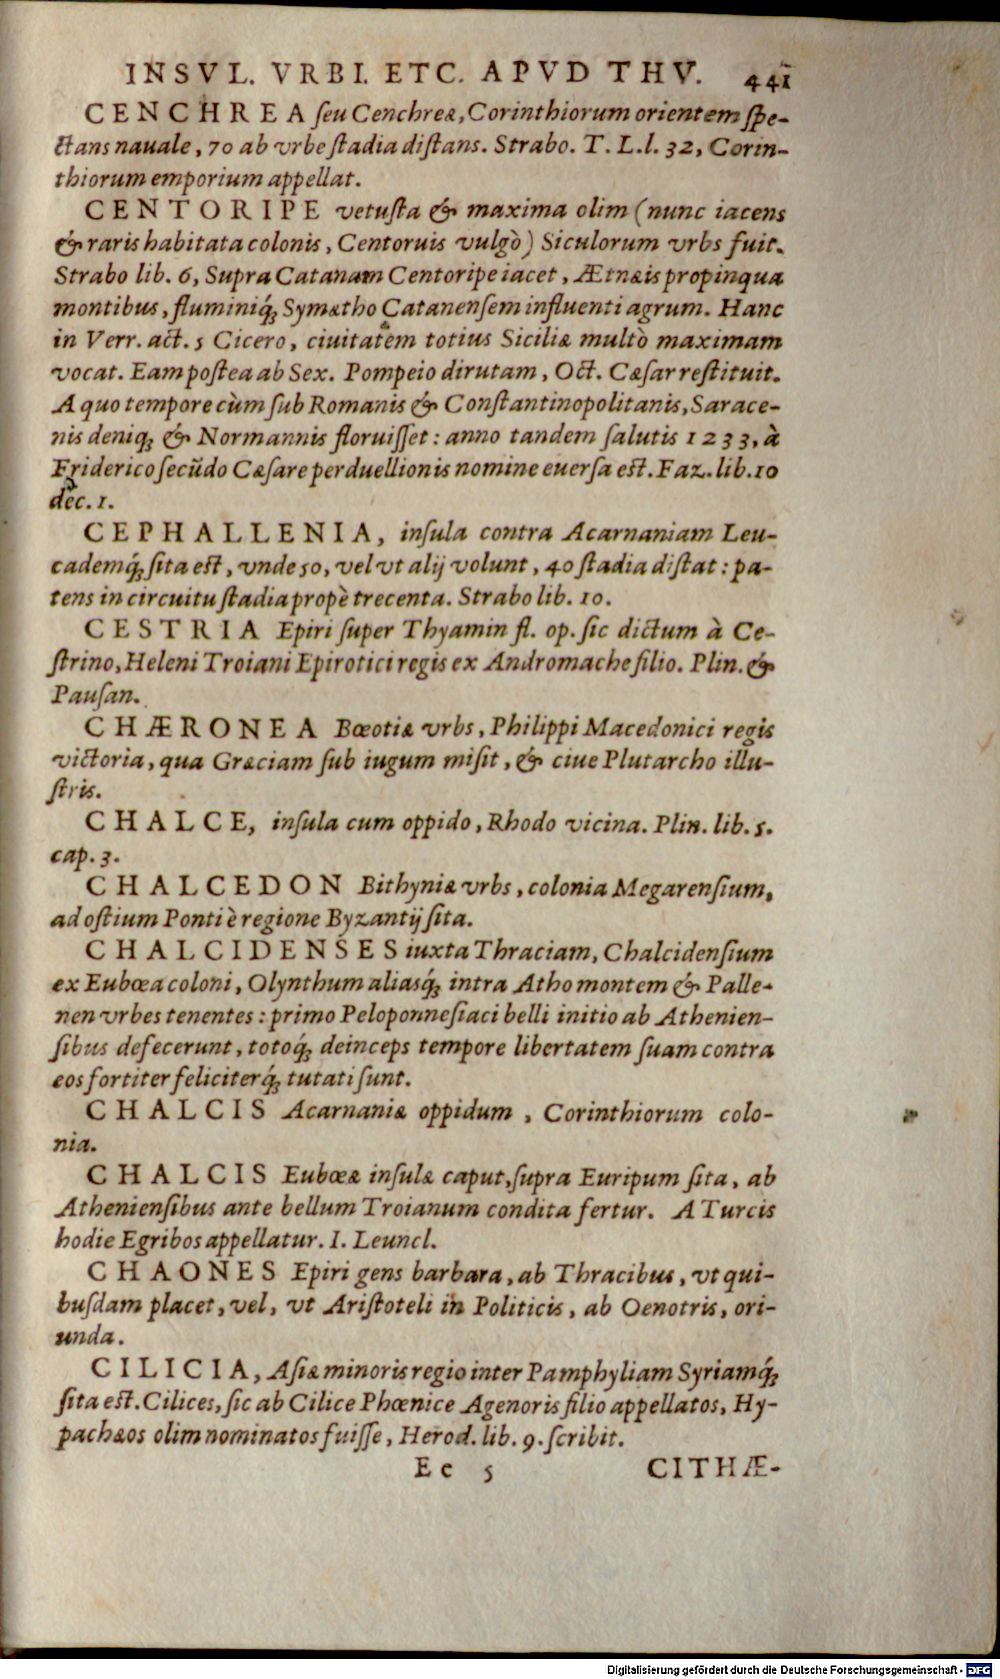 INSVL. VRBI. ETC. APVD THV. 441
CENCHREA ſeu Cenchreæ, Corinthiorum orientem ſpe-
ctans nauale, 70 ab vrbe ſtadia diſtans. Strabo. T. L. l. 32, Corin-
thiorum emporium appellat.
CENTORIPE vetuſta & maxima olim (nunc iacens
& raris habitata colonis, Centoruis vulgò) Siculorum vrbs fuit.
Strabo lib. 6, Supra Catanam Centoripe iacet, Ætnæis propinqua
montibus, fluminiq́; Symætho Catanenſem influenti agrum. Hanc
in Verr. act. 5 Cicero, ciuitatem totius Siciliæ multò maximam
vocat. Eam poſtea ab Sex. Pompeio dirutam, Oct. Cæſar reſtituit.
A quo tempore cùm ſub Romanis & Conſtantinopolitanis, Sarace-
nis deniq; & Normannis floruiſſet: anno tandem ſalutis 1233, à
Friderico ſecũdo Cæſare perduellionis nomine euerſa eſt. Faz. lib. 10
dec. 1.
CEPHALLENIA, inſula contra Acarnaniam Leu-
cademq́; ſita eſt, vnde 50, vel vt alij volunt, 40 ſtadia diſtat: pa-
tens in circuitu ſtadia propè trecenta. Strabo lib. 10.
CESTRIA Epiri ſuper Thyamin fl. op. ſic dictum à Ce-
ſtrino, Heleni Troiani Epirotici regis ex Andromache filio. Plin. &
Pauſan.
CHÆRONEA Bœotiæ vrbs, Philippi Macedonici regis
victoria, qua Græciam ſub iugum miſit, & ciue Plutarcho illu-
ſtris.
CHALCE, inſula cum oppido, Rhodo vicina. Plin. lib. 5.
cap. 3.
CHALCEDON Bithyniæ vrbs, colonia Megarenſium,
ad oſtium Ponti è regione Byzantij ſita.
CHALCIDENSES iuxta Thraciam, Chalcidenſium
ex Eubœa coloni, Olynthum aliasq́; intra Atho montem & Palle-
nen vrbes tenentes: primo Peloponneſiaci belli initio ab Athenien-
ſibus defecerunt, totoq́; deinceps tempore libertatem ſuam contra
eos fortiter feliciterq́; tutati ſunt.
CHALCIS Acarnaniæ oppidum, Corinthiorum colo-
nia.
CHALCIS Eubœæ inſulæ caput, ſupra Euripum ſita, ab
Athenienſibus ante bellum Troianum condita fertur. A Turcis
hodie Egribos appellatur. I. Leuncl.
CHAONES Epiri gens barbara, ab Thracibus, vt qui-
buſdam placet, vel, vt Ariſtoteli in Politicis, ab Oenotris, ori-
unda.
CILICIA, Aſiæ minoris regio inter Pamphyliam Syriamq́;
ſita eſt. Cilices, ſic ab Cilice Phœnice Agenoris filio appellatos, Hy-
pachæos olim nominatos fuiſſe, Herod. lib. 9. ſcribit.
Ee 5 CITHÆ-
Digitalisierung gefördert durch die Deutsche Forschungsgemeinschaft - DFG